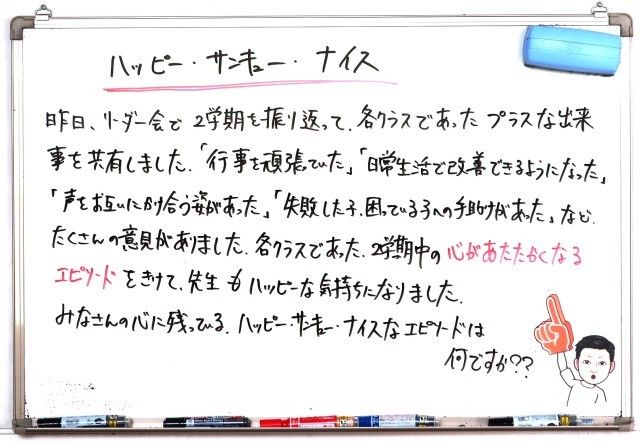 ハッピー・サンキュー・ナイス
昨日、リーダー会で 2学期を振り返って、各クラスであった プラスな出来
事を共有しました。「行事を頑張っていた」「日常生活で改善できるようになった」
「声をお互いにかけ合う姿があった」「失敗した子、困っている子への手助けがあった」など、
たくさんの意見がありました。各クラスであった、2学期中の 心があたたかくなる
エピソードをきけて、先生も ハッピーな気持ちになりました。
みなさんの心に残っている、ハッピー・サンキュー・ナイスなエピソードは
何ですか??